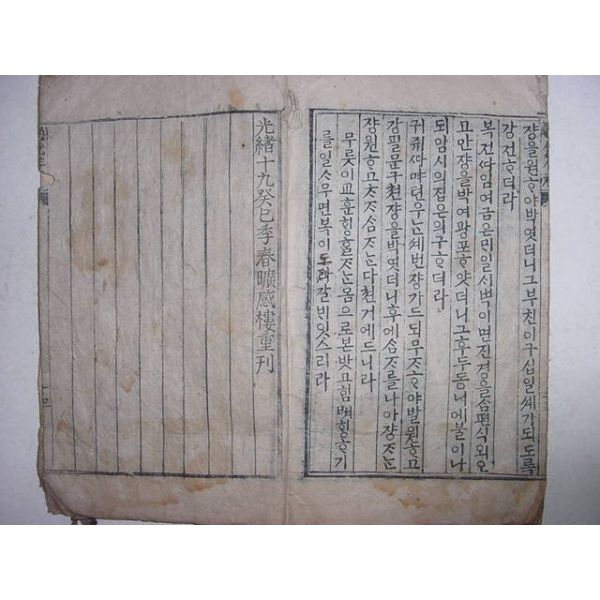 쟝을원ᄒᆞ야박엿더니그부친이구십일셰가되도록
강건ᄒᆞ더라
복건ᄯᅡ임여금은ᄆᆡ일ᄉᆡ벽이면진경을ᄉᆞᆷ편식외오
고만쟝을박여광포ᄒᆞ얏더니그후두동ᄂᆡ에불이나
되암시의집은의구ᄒᆞ더라
귀쥐ᄯᅡ먀뎐우ᄂᆞᆫ셰번쟝가드되무ᄌᆞᄒᆞ야발원ᄒᆞ고
강필문구쳔쟝을박엿더니후에ᄉᆞᆷᄌᆞ를나아쟝ᄌᆞᄂᆞᆫ
쟝원ᄒᆞ고ᄎᆞᄌᆞᄉᆞᆷᄌᆞᄂᆞᆫ다쳔거에드니라
무릇이교훈ᄒᆡᆼᄒᆞᆯᄌᆞᄂᆞᆫ몸으로본밧고힘ᄡᅥᄒᆡᆼᄒᆞ기
를일ᄉᆞᆷ우면복이도라갈ᄇᆡ잇스리라
光緖十九癸巳季春曠感樓重刊